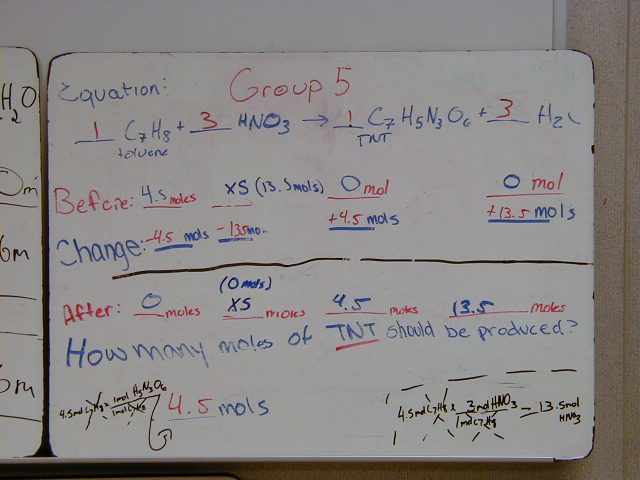 H2O
Group 5
Equation:
1 C7H8 + 3 HNO3 → 1 C7H5N3O6 + 3 H2
toluene TNT
Before: 4.5 moles XS (13.5mols) 0 mol 0 mol
Change: -4.5 mols -13.5mo +4.5 mols +13.5 mols
(0 mols)
After: 0 moles XS moles 4.5 moles 13.5 moles
How many moles of TNT should be produced?
4.5 mols
4.5molC7H8 x 3molHNO3 = 13.5mol
1molC7H8 HNO3